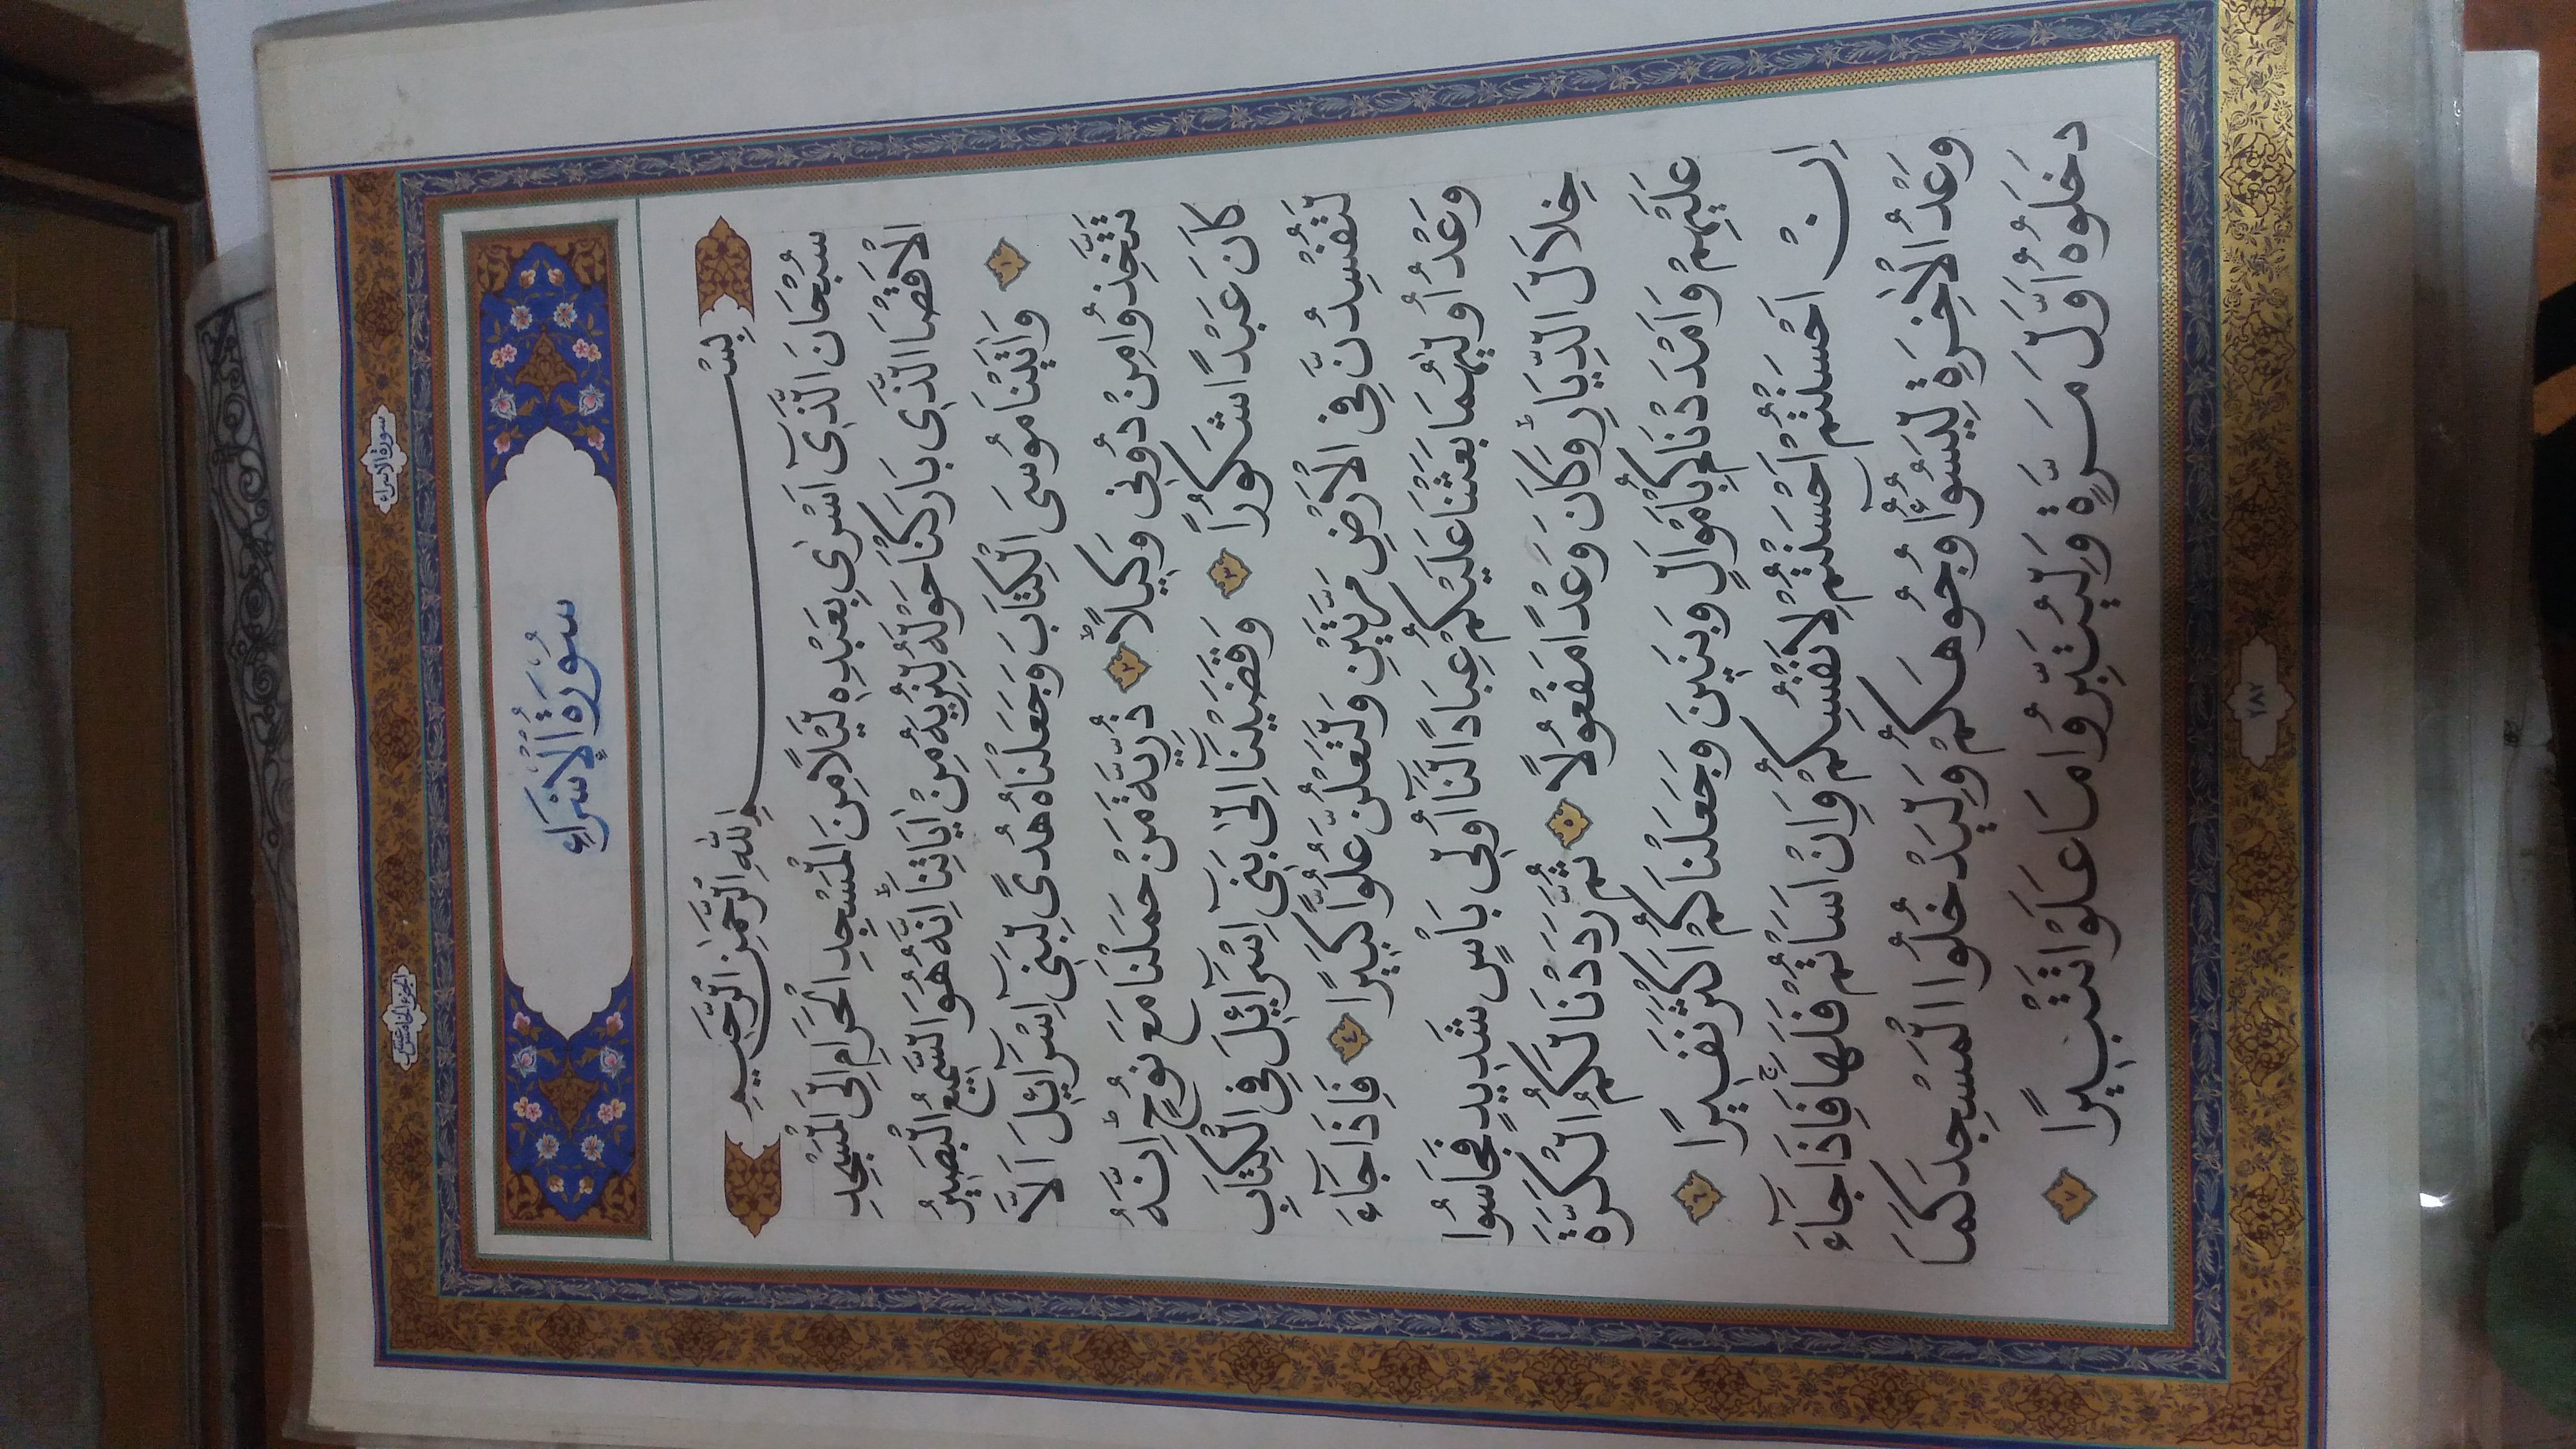 الجزء الخامس عشر
سورة الاسراء
سُورَةُ الْإِسْرَاءِ
بِسْمِ اللهِ الرَّحْمٰنِ الرَّحِيمِ
سُبْحَانَ الَّذٓى اَسْرٰى بِعَبْدِهٖ لَيْلًا مِنَ الْمَسْجِدِ الْحَرَامِ اِلَى الْمَسْجِدِ
الْاَقْصَا الَّذٖى بَارَكْنَا حَوْلَهُ لِنُرِيَهُ مِنْ اٰيَاتِنَاۜ اِنَّهُ هُوَ السَّمٖيعُ الْبَصٖيرُ
﴿١﴾ وَاٰتَيْنَا مُوسَى الْكِتَابَ وَجَعَلْنَاهُ هُدًى لِبَنٖٓى اِسْرَٓائٖلَ اَلَّا
تَتَّخِذُوا مِنْ دُونٖى وَكٖيلًاۜ ﴿٢﴾ ذُرِّيَّةَ مَنْ حَمَلْنَا مَعَ نُوحٍۜ اِنَّهُ
كَانَ عَبْدًا شَكُورًا ﴿٣﴾ وَقَضَيْنَٓا اِلٰى بَنٖٓى اِسْرَٓائٖلَ فِى الْكِتَابِ
لَتُفْسِدُنَّ فِى الْاَرْضِ مَرَّتَيْنِ وَلَتَعْلُنَّ عُلُوًّا كَبٖيرًا ﴿٤﴾ فَاِذَا جَٓاءَ
وَعْدُ اُولٰيهُمَا بَعَثْنَا عَلَيْكُمْ عِبَادًا لَنَٓا اُولٖى بَاْسٍ شَدٖيدٍ فَجَاسُوا
خِلَالَ الدِّيَارِۜ وَكَانَ وَعْدًا مَفْعُولًا ﴿٥﴾ ثُمَّ رَدَدْنَا لَكُمُ الْكَرَّةَ
عَلَيْهِمْ وَاَمْدَدْنَاكُمْ بِاَمْوَالٍ وَبَنٖينَ وَجَعَلْنَاكُمْ اَكْثَرَ نَفٖيرًا ﴿٦﴾
اِنْ اَحْسَنْتُمْ اَحْسَنْتُمْ لِاَنْفُسِكُمْ وَاِنْ اَسَاْتُمْ فَلَهَاۚ فَاِذَا جَٓاءَ
وَعْدُ الْاٰخِرَةِ لِيَسُٓؤُا وُجُوهَكُمْ وَلِيَدْخُلُوا الْمَسْجِدَ كَمَا
دَخَلُوهُ اَوَّلَ مَرَّةٍ وَلِيُتَبِّرُوا مَا عَلَوْا تَتْبٖيرًا ﴿٧﴾
٢٨٢